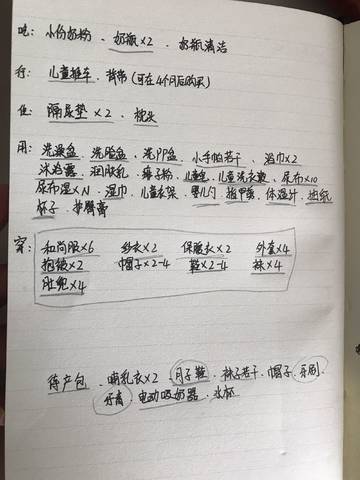 吃: 小份奶粉、奶瓶×2、奶瓶清洁
行: 儿童推车、背带(可在4个月后购买)
住: 隔尿垫×2、枕头
用: 洗澡盆、洗脸盆、洗PP盆、小手帕若干、浴巾×2
沐浴露、润肤乳、痱子粉、儿童皂、儿童洗衣液、尿布×10
尿布湿×N、湿巾、儿童衣架、婴儿勺、指甲剪、体温计、抽纸
杯子、护臀膏
穿: 和尚服×6 纱衣×2 保暖衣×2 外套×4
抱被×2 帽子×2-4 鞋×2-4 袜×4
肚兜×4
待产包、哺乳衣×2、月子鞋、袜子若干、帽子、牙刷、
牙膏、电动吸奶器、水杯